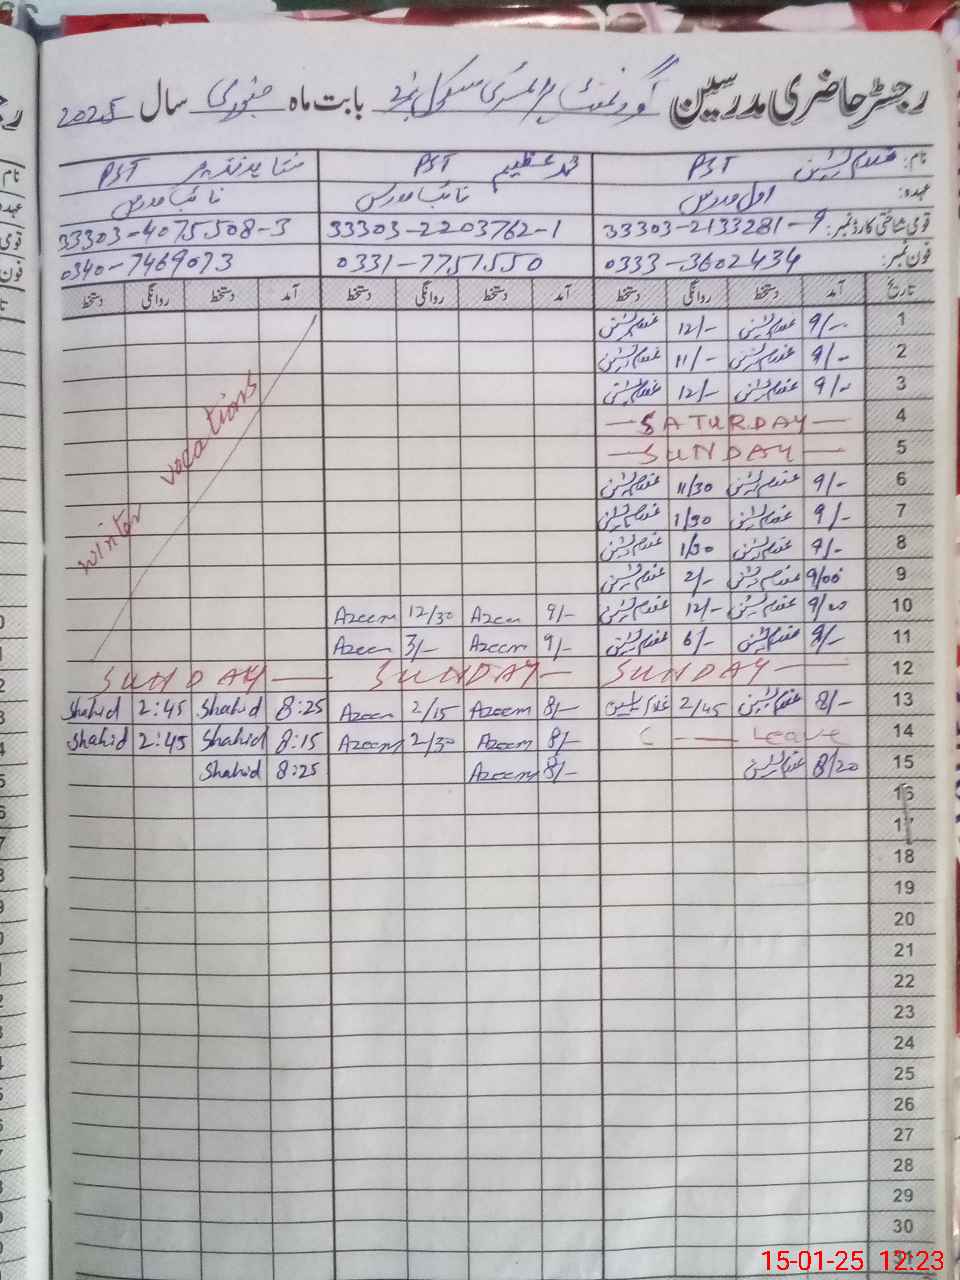 رجسٹر حاضری مدرسین گورنمنٹ پرائمری سکول نمبر2 بابت ماہ جنوری سال 2025
نام: غلام یٰسین PST محمد عظیم PST شاہد نذیر PST
عہدہ: اول مدرس نائب مدرس نائب مدرس
قومی شناختی کارڈ نمبر: 33303-2133281-9 33303-2203762-1 33303-4075508-3
فون نمبر: 0333-3602434 0331-7751550 0340-7469073
تاریخ آمد دستخط روانگی دستخط آمد دستخط روانگی دستخط آمد دستخط روانگی دستخط
1 9/- غلام یٰسین 12/- غلام یٰسین
2 9/- غلام یٰسین 11/- غلام یٰسین
3 9/- غلام یٰسین 12/- غلام یٰسین
4 SATURDAY
5 SUNDAY
6 9/- غلام یٰسین 11/30 غلام یٰسین
7 9/- غلام یٰسین 1/30 غلام یٰسین
8 9/- غلام یٰسین 1/30 غلام یٰسین
9 9/00 غلام یٰسین 2/- غلام یٰسین
10 9/00 غلام یٰسین 12/- غلام یٰسین 9/- Azeem 12/30 Azeem
11 9/- غلام یٰسین 6/- غلام یٰسین 9/- Azeem 3/- Azeem
winter vocations
12 SUNDAY SUNDAY SUNDAY
13 8/- غلام یٰسین 2/45 غلام یٰسین 8/- Azeem 2/15 Azeem 8:25 Shahid 2:45 Shahid
14 C Leave 8/- Azeem 2/30 Azeem 8:15 Shahid 2:45 Shahid
15 8/20 غلام یٰسین 8/- Azeem 8:25 Shahid
16
17
18
19
20
21
22
23
24
25
26
27
28
29
30
31
15-01-25 12:23